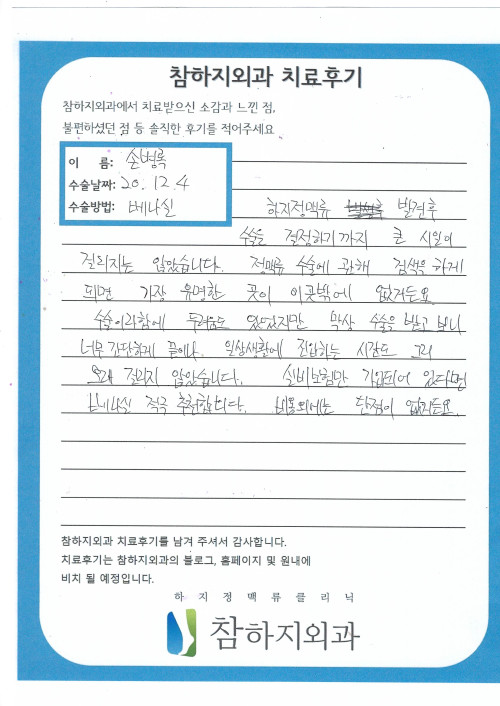 참하지외과 치료후기
참하지외과에서 치료받으신 소감과 느낀 점,
불편하셨던 점 등 솔직한 후기를 적어주세요
이 름: 손병록
수술날짜: 20. 12. 4
수술방법: 베나실
하지정맥류 발견후
수술을 결정하기 까지 큰 시일이
걸리지는 않았습니다. 정맥류 수술에 관해 검색을 하게
되면 가장 유명한 곳이 이곳밖에 없거든요.
수술이라함에 두려움도 있었지만 막상 수술을 받고 보니
너무 간단하게 끝이나. 일상생활에 진입하는 시간도 그리
오래 걸리지 않았습니다. 실비보험만 가입되어 있다면
베나실 적극 추천합니다. 비용외에는 단점이 없거든요.
참하지외과 치료후기를 남겨 주셔서 감사합니다.
치료후기는 참하지외과의 블로그, 홈페이지 및 원내에
비치 될 예정입니다.
하지정맥류클리닉
참하지외과